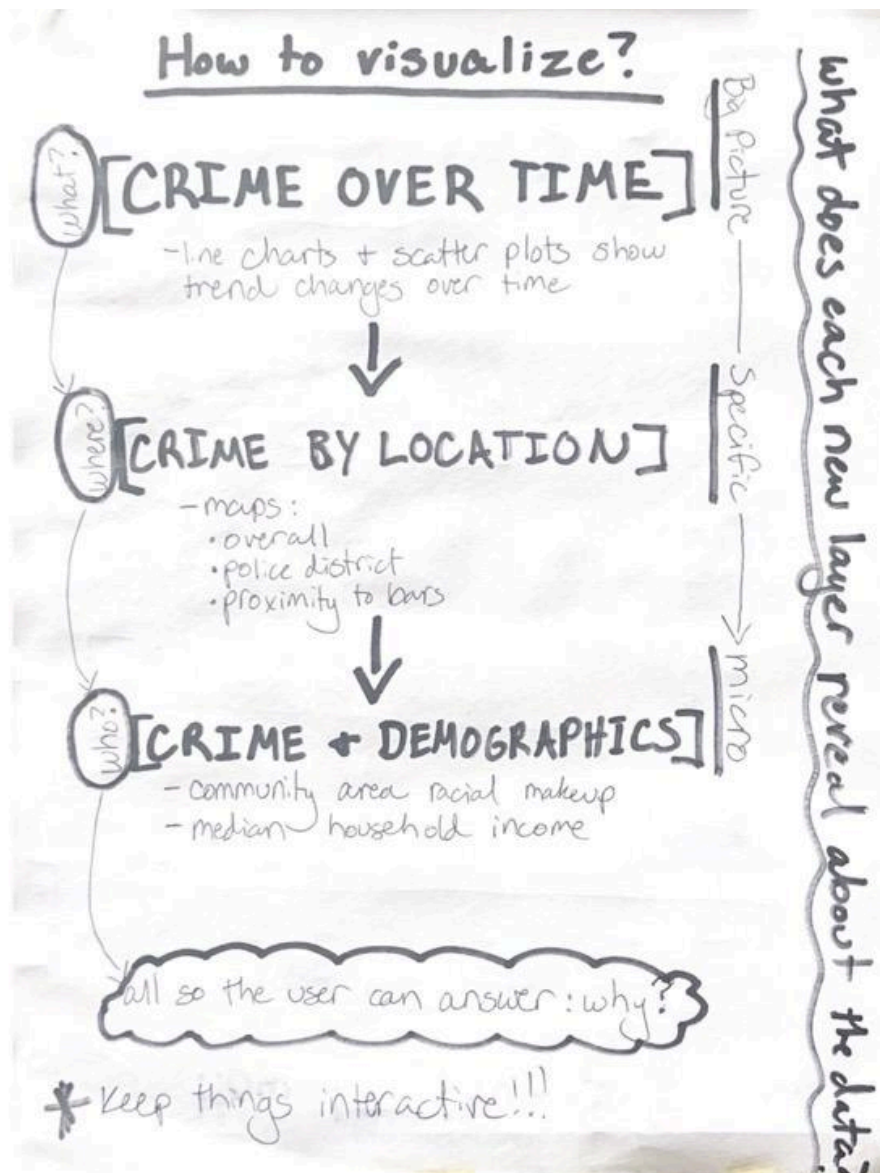 How to visualize?
what?
[CRIME OVER TIME]
-line charts + scatter plots show
trend changes over time
Big Picture
where?
[CRIME BY LOCATION]
-maps:
•overall
•police district
•proximity to bars
Specific
who?
[CRIME + DEMOGRAPHICS]
-community area racial makeup
-median household income
micro
all so the user can answer: why?
* Keep things interactive!!!
what does each new layer reveal about the data?